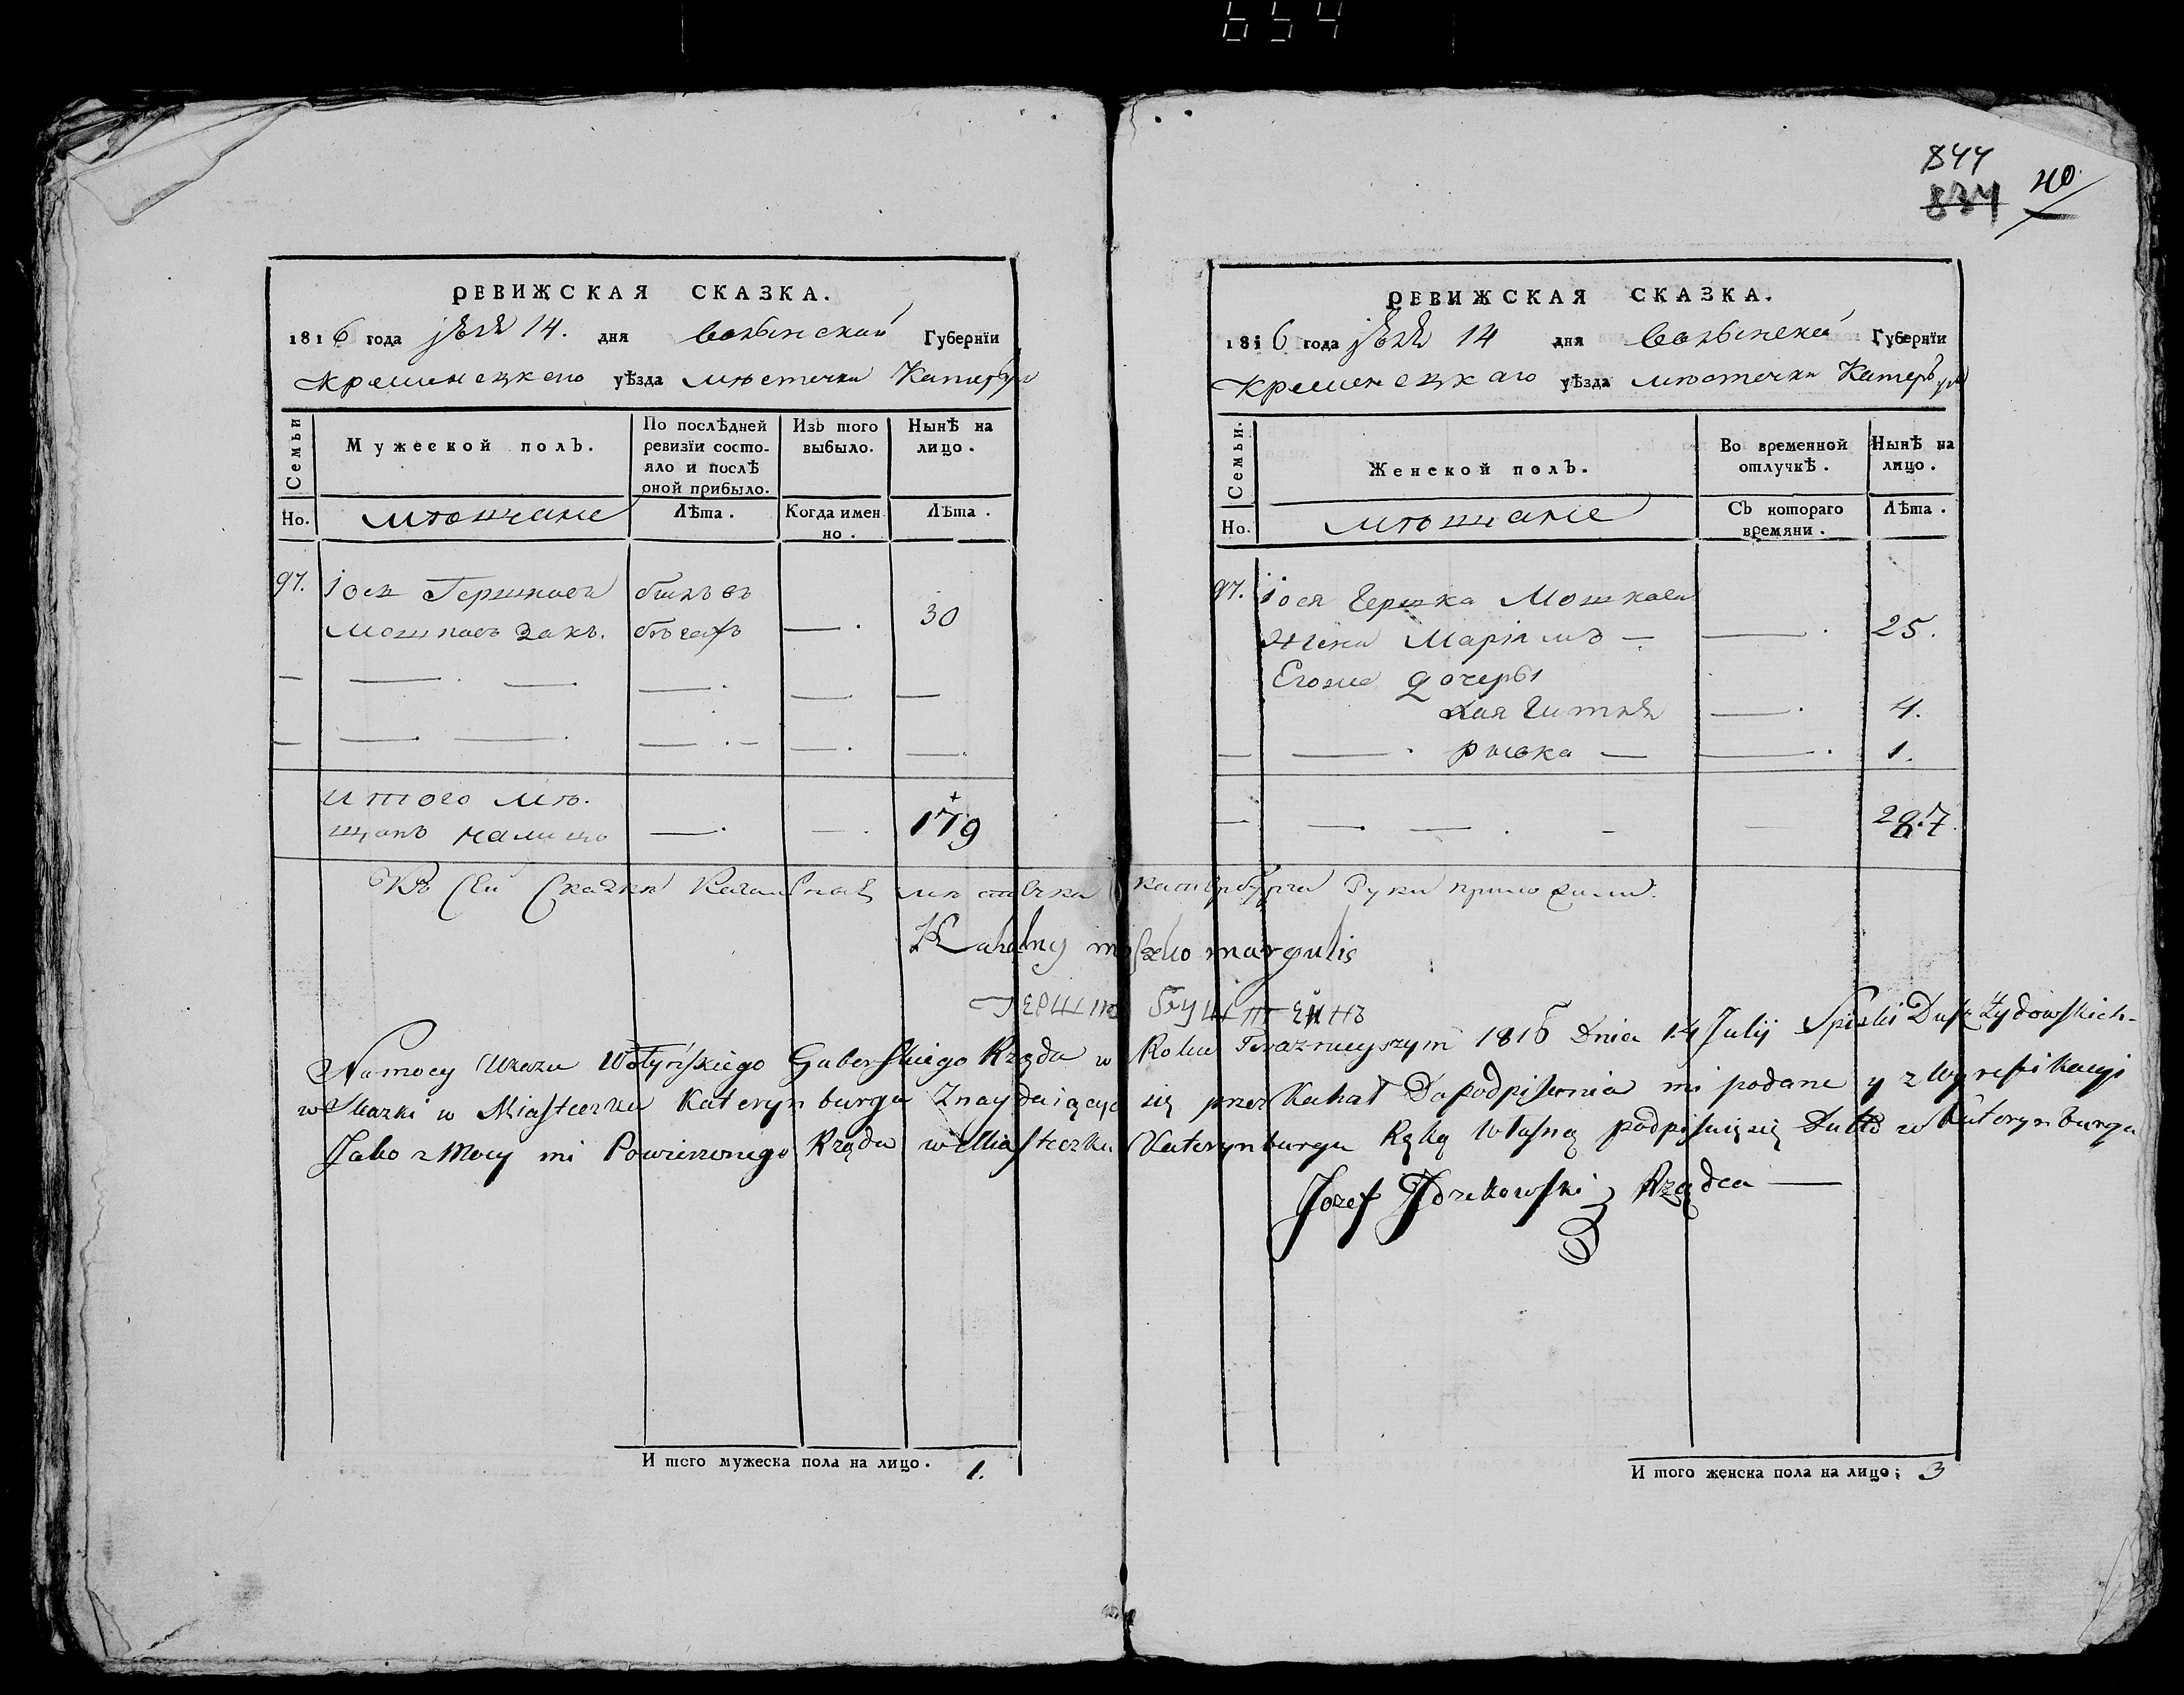 654
844
834 40
РЕВИЖСКАЯ СКАЗКА.
1816 года июля 14. дня Волынской Губернїи
Кременецкаго уѣзда мѣстечка Катербурга
Семьи
Мужеской полъ.
По послѣдней ревизїи состояло и послѣ оной прибыло.
Изъ того выбыло.
Нынѣ на лицо.
Но.
мѣщане
Лѣта.
Когда именно.
Лѣта.
97. Іося Гершковъ былъ въ
Мошковъ Закъ. бѣгахъ — 30
итого мѣ-
щанъ налицо — 179
РЕВИЖСКАЯ СКАЗКА.
1816 года июля 14 дня Волынской Губернїи
Кременецкаго уѣзда мѣстечка Катербурга
Семьи.
Женской полъ.
Во временной отлучкѣ.
Нынѣ на лицо.
Но.
мѣщане
Съ котораго времяни.
Лѣта.
97. Іося Гершка Мошкова
жена Маріямъ — 25.
Егоже дочеры
Хая Гитля — 4.
Рывка — 1.
287
Къ сей скаскѣ кагальные мѣстечка Катербурга руки приложили.
Kahalny moszko margulis
Гершко
Na mocy Ukazu Wołyńskiego Guberskiego Rządu w Roku Teraznieyszym 1816 Dnia 14 Julij Spiski Dusz Żydowskich
w Skazki w Miasteczku Katerynburgu Znayduiących się przez Kahał Do podpisania mi podane y z Weryfikacyi
Jako z Mocy mi Powierzonego Rządu w Miasteczku Katerynburgu Ręką Własną podpisuię się Datto w Katerynburgu
Jozef Jdzikowski Rządca —
И того мужеска пола на лицо. 1.
И того женска пола на лицо; 3